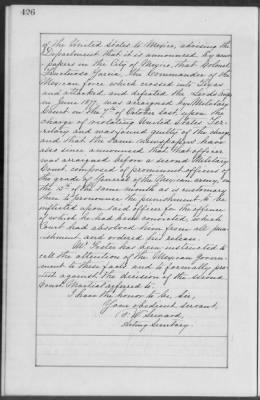 426
of the United States to Mexico, advising the
Department that it is announced by news-
papers in the City of Mexico, that Colonel
Garcia, the Commander of the
Mexican force which crossed into Texas
and attacked and defeated the
in June 1877, was arraigned by Military
Court on the of October last, upon the
charge of violating United States Ter-
ritory and was found guilty of the charge
and that the same newspapers have
also since announced that that officer
was arraigned before a second Military
Court, composed of prominent officers of
the grade of General of the Mexican army, on
the of the same month as is customary
there to pronounce the punishment to be
inflicted upon said officer for the offense
of which he had been convicted, which
Court had absolved him from all pun-
ishment and ordered his release.
Mr. Foster has been instructed to
call the attention of the Mexican govern-
ment to these facts and to formally pro-
test against the decision of the second
Court Martial referred to.
I have the honor to be, Sir,
Your obedient servant,
F. W. Seward,
Acting Secretary.